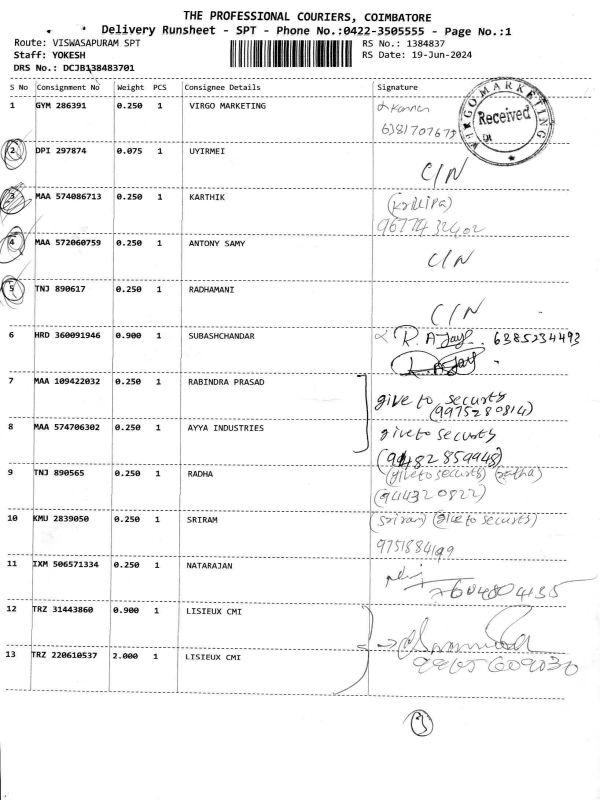 THE PROFESSIONAL COURIERS, COIMBATORE
Delivery Runsheet - SPT - Phone No.:0422-3505555 - Page No.:1
Route: VISWASAPURAM SPT
RS No.: 1384837
Staff: YOKESH
RS Date: 19-Jun-2024
DRS No.: DCJB138483701
S No Consignment No Weight PCS Consignee Details Signature
1 GYM 286391 0.250 1 VIRGO MARKETING
VIRGO MARKETING
Received
2 DPI 297874 0.075 1 UYIRMEI
C/N
3 MAA 574086713 0.250 1 KARTHIK
9677432402
4 MAA 572060759 0.250 1 ANTONY SAMY
C/N
5 TNJ 890617 0.250 1 RADHAMANI
C/N
6 HRD 360091946 0.900 1 SUBASHCHANDAR R. Ajay. 6385234493
R. Ajay
7 MAA 109422032 0.250 1 RABINDRA PRASAD
give to security
(9975280814)
8 MAA 574706302 0.250 1 AYYA INDUSTRIES give to security
(9482859948)
9 TNJ 890565 0.250 1 RADHA (give to security) (radha)
(944320822)
10 KMU 2839050 0.250 1 SRIRAM (sriram) (give to security)
9751884199
11 IXM 506571334 0.250 1 NATARAJAN
7604804135
12 TRZ 31443860 0.900 1 LISIEUX CMI
13 TRZ 220610537 2.000 1 LISIEUX CMI
9965609030